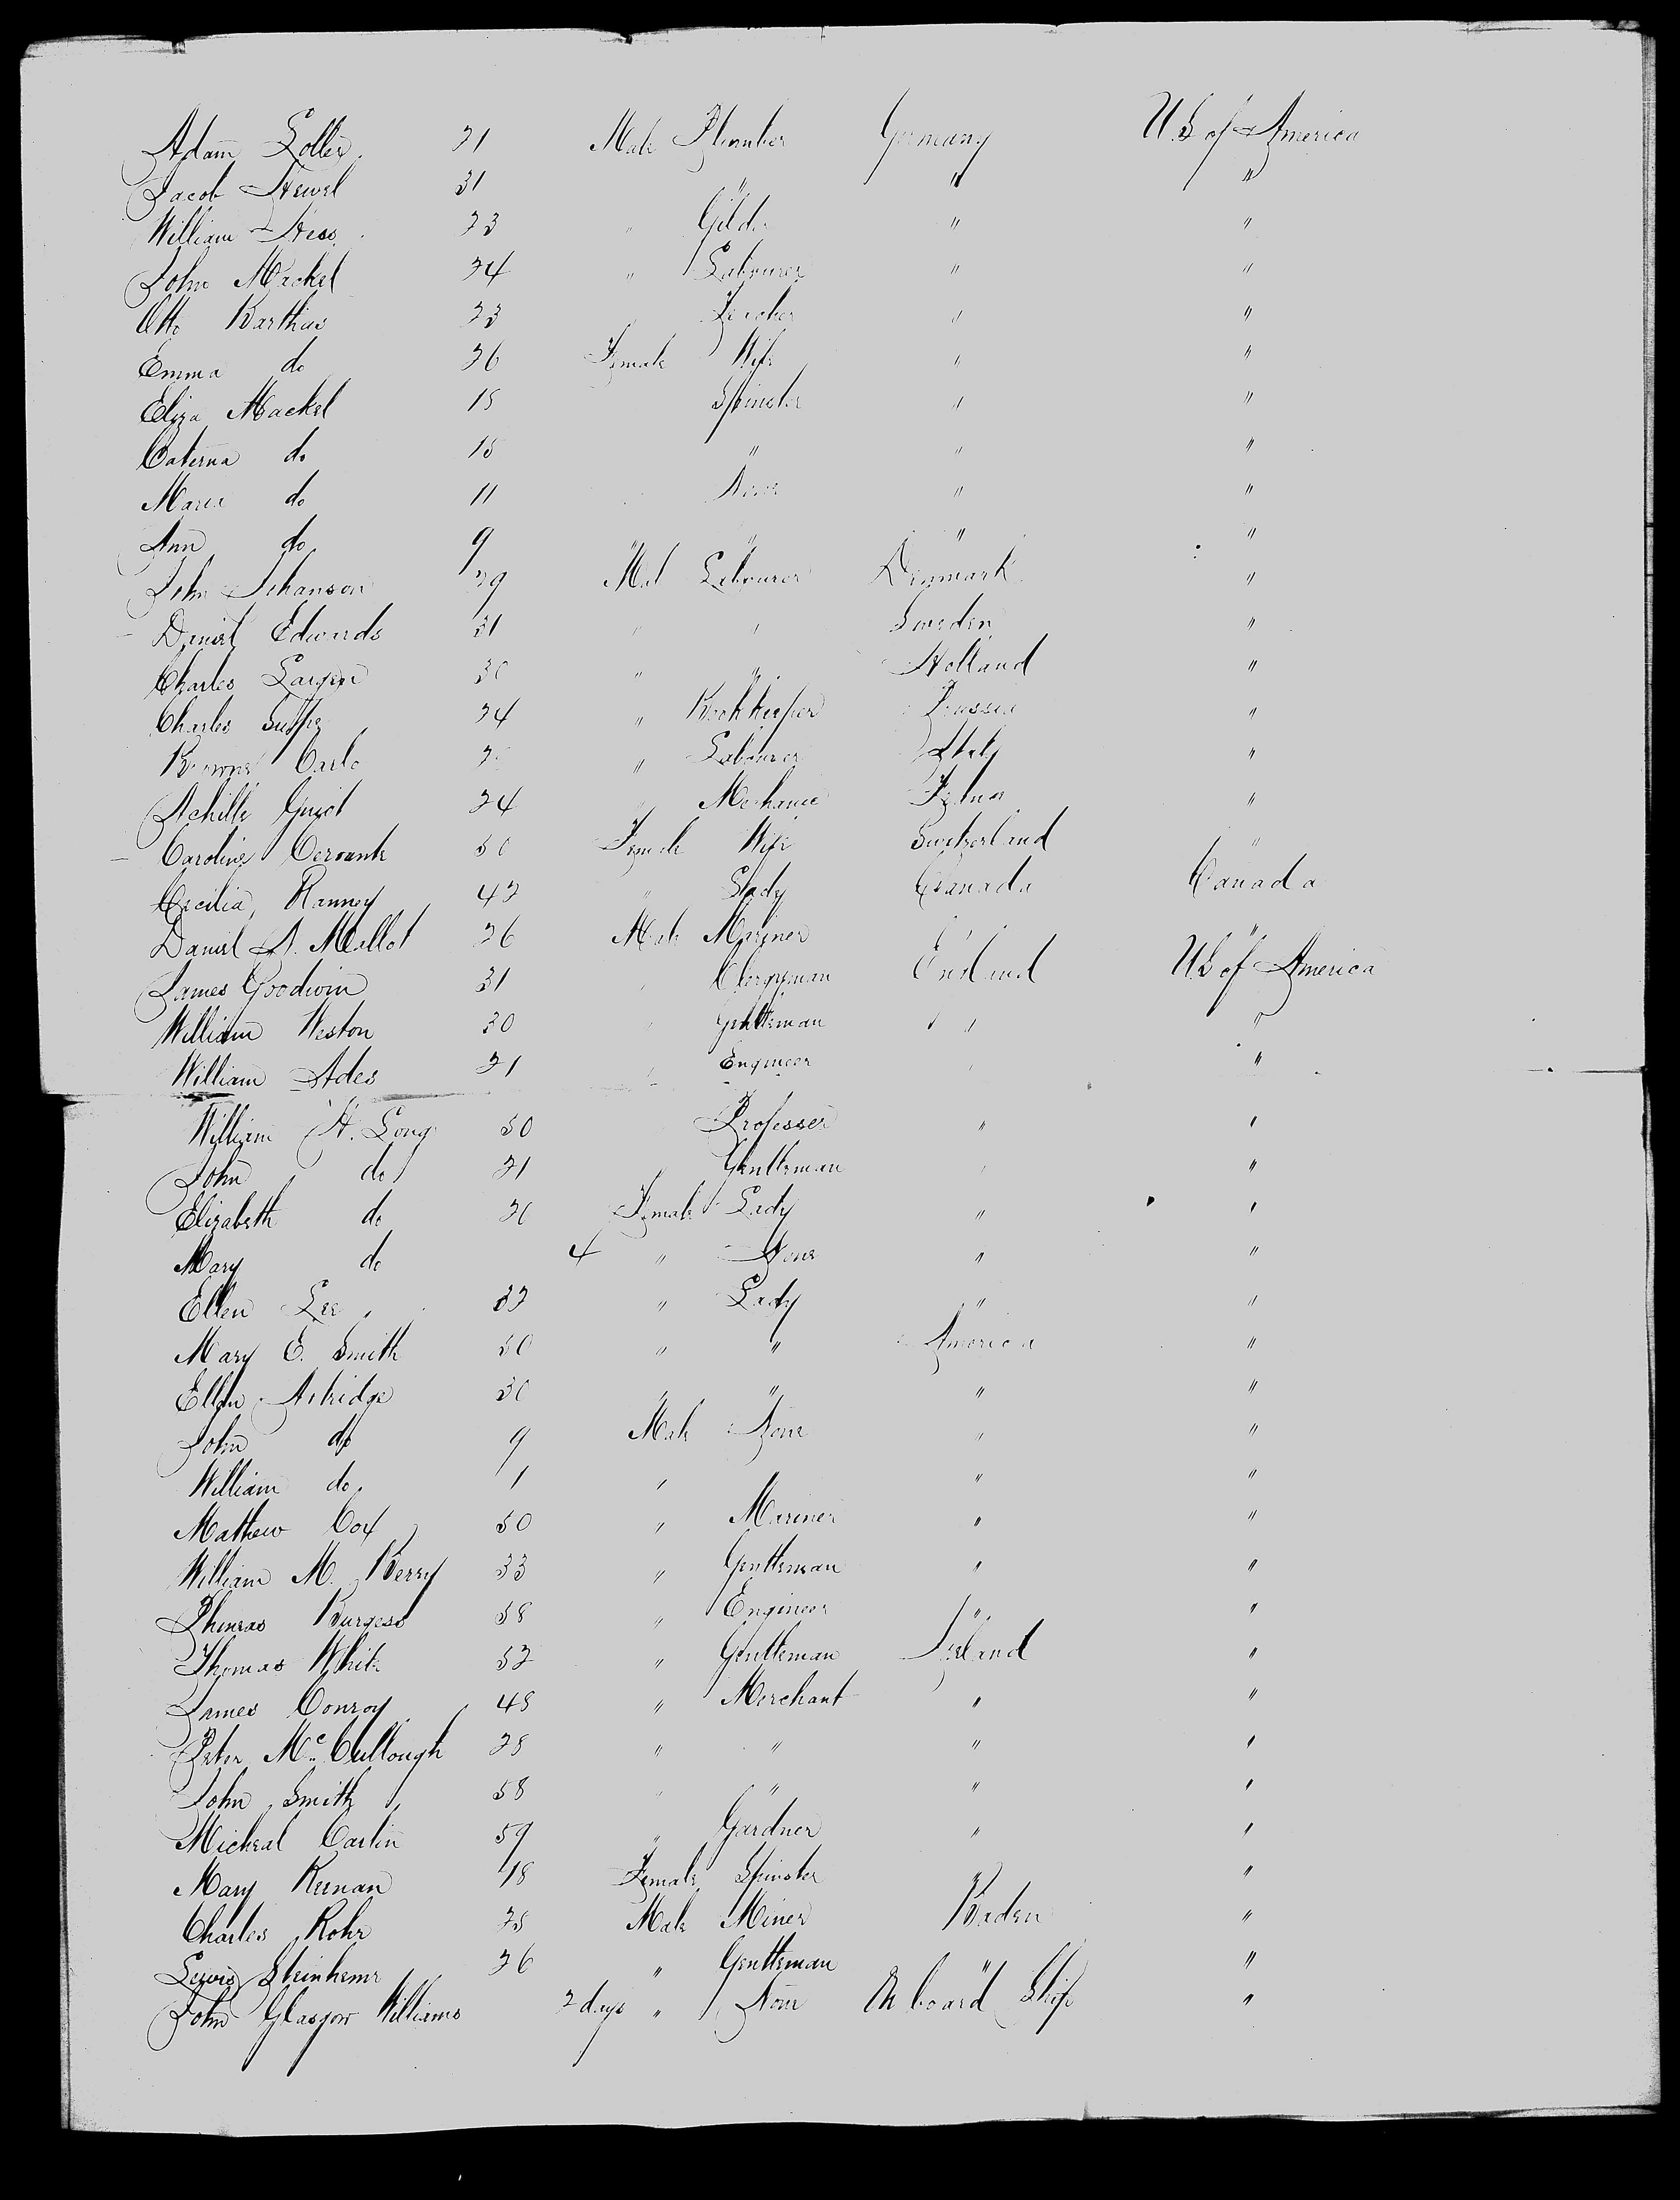 Adam Loller 21 Male Plumber Germany U.S of America
Jacob Hewel 31 " " "
William Hess 23 " Gild. " "
John Mackel 24 " Labourer " "
Otto Barthus 23 " "
Emma do 26 Female Wife " "
Eliza Mackel 18 Spinster " "
Caterna do 15 " " "
Maria do 11 None " "
Ann do 9 " " "
John Johanson 29 Male Labourer Denmark "
Daniel Edwards 31 " " Sweden "
Charles 30 " " Holland "
Charles 24 " Bookkeeper Prussia "
Carlo " Labourer Italy "
Achille Guiot 24 " Mechanic "
Caroline 50 Female Wife Switzerland "
Cecilia Ranney 42 " Lady Canada Canada
Daniel A. Mallot 26 Male Mariner " "
James Goodwin 31 " Clergyman England U.S of America
William Weston 30 " Gentleman " "
William Ades 21 " Engineer " "
William H. Long 50 Professer " "
John do 21 " Gentleman " "
Elizabeth do 20 Female Lady " "
Mary do 4 " None " "
Ellen Lee 32 " Lady " "
Mary E. Smith 50 " " America "
Ellen Astridge 30 " " " "
John do 9 Male None " "
William do 1 " " "
Mathew Cox 50 " Mariner " "
William M. Berry 33 " Gentleman " "
Phineas Burgess 58 " Engineer " "
Thomas White 52 " Gentleman Ireland "
James Conroy 48 " Merchant " "
Peter McCullough 28 " " " "
John Smith 58 " " " "
Micheal Carlin 59 " Gardner " "
Mary Keenan 18 Female Spinster " "
Charles Rohr 28 Male Miner Baden "
Lewis Steinheme 26 " Gentleman " "
John Glasgow Williams 2 days " None On board Ship "